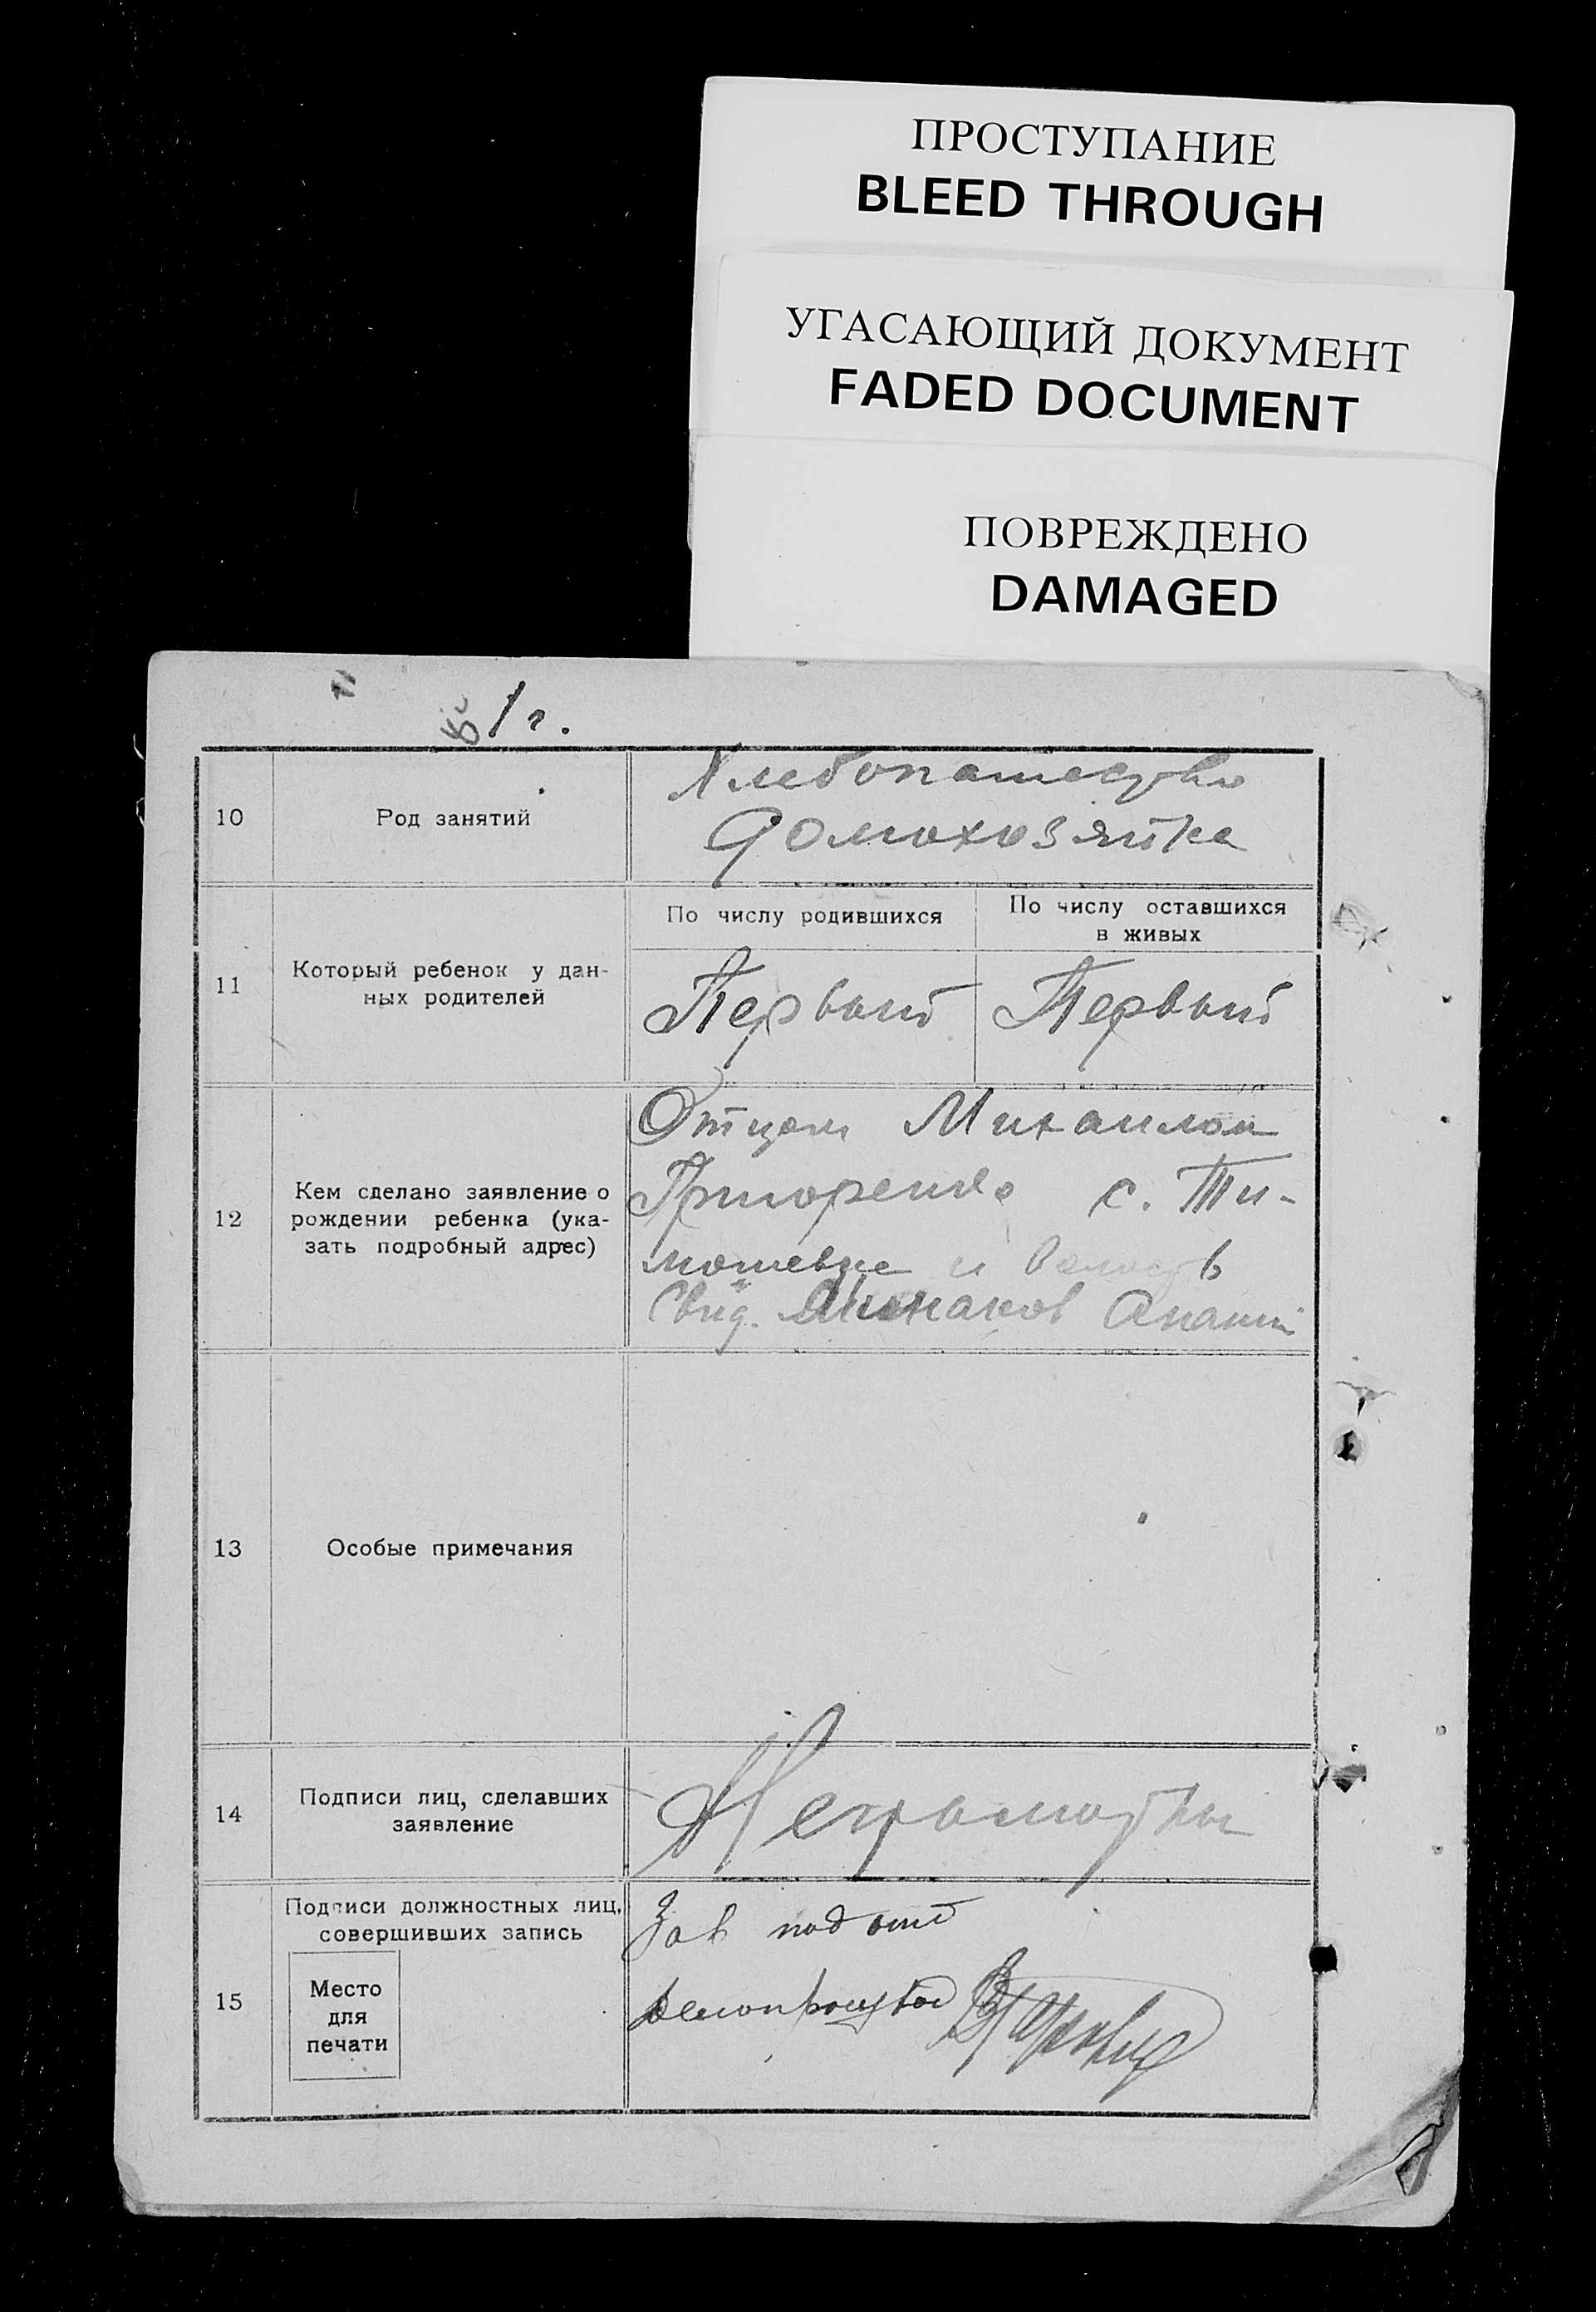 ПРОСТУПАНИЕ
BLEED THROUGH
УГАСАЮЩИЙ ДОКУМЕНТ
FADED DOCUMENT
ПОВРЕЖДЕНО
DAMAGED
1 г.
10
Род занятий
Хлебопашество
Домохозяйка
11
Который ребенок у дан-
ных родителей
По числу родившихся
Первый
По числу оставшихся
в живых
Первый
12
Кем сделано заявление о
рождении ребенка (ука-
зать подробный адрес)
Отцом Михаилом
с. Ти-
мошевке и волость
Свид.
13
Особые примечания
14
Подписи лиц, сделавших
заявление
Неграмотны
15
Подписи должностных лиц,
совершивших запись
Место
для
печати
Зав под